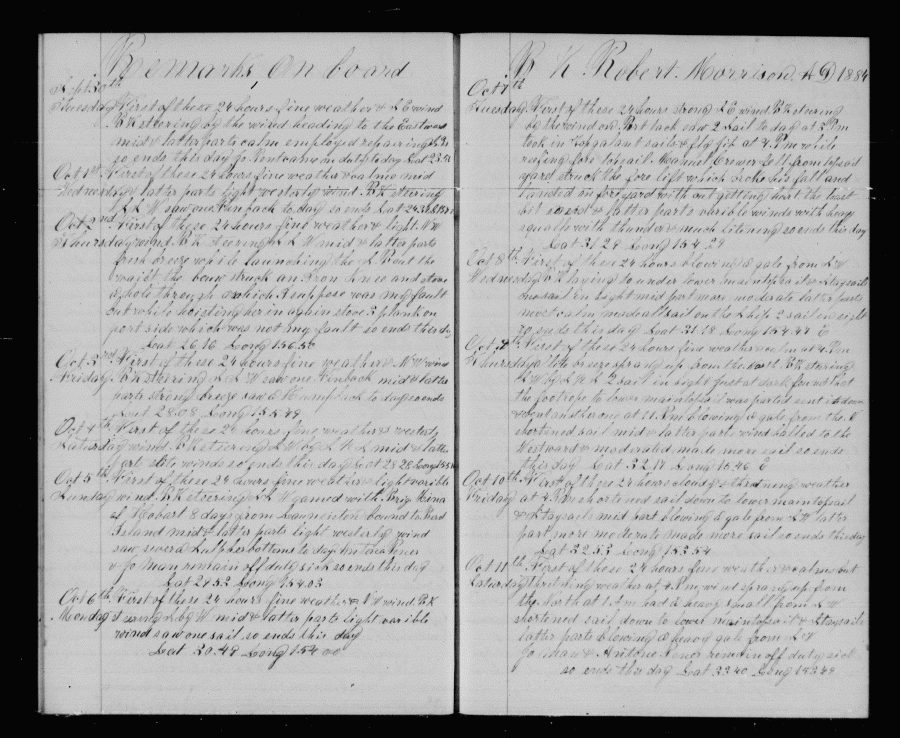 Remarks On board
Sept 30th
Tuesday First of these 24 hours fine weather & S E wind
B K steering by the wind heading to the Eastward
mid & latter parts calm employed repairing
so ends this day Lat 23.51
Oct 1st First of these 24 hours fine weather & calm mid
Wednesday & latter parts light westerly wind B K steering
saw one Finback to day so ends Lat 24.32
Oct 2nd First of these 24 hours fine weather & light N W
Thursday wind B K steering S S W mid & latter parts
fresh breeze while launching the S B out the
waist the bow struck an Iron Knee and stove
a hole through which I suppose was my fault
but while hoisting her in again stove 3 plank on
port side which was not my fault so ends this day
Lat 26.16 Long 156.50
Oct 3rd First of these 24 hours fine weather & N W wind
Friday B K steering saw one Finback mid & latter
parts strong breeze saw to day so ends
Lat 28.08 Long 155.49
Oct 4th First of these 24 hours fine weather & westerly
Saturday wind B K steering S W by S mid & latter
part winds so ends this day Lat 28.28 Long
Oct 5th First of these 24 hours fine weather & light varible
Sunday wind B K steering S W gamed with Brig
of Hobart 8 days from Launceston bound to
Island mid & latter parts light westerly wind
saw several Sulpherbottoms to day
& Jo man remain off duty sick so ends this day
Lat 29.53 Long 154.03
Oct 6th First of these 24 hours fine weather & wind B K
Monday steering S by W mid & latter parts light varible
wind saw one sail so ends this day
Lat 30.49 Long 154.00
B K Robert Morrison A D 1884
Oct 7th
Tuesday First of these 24 hours strong S E wind B K steering
by the wind on Port tack saw 2 sail to day at 3 Pm
took in topgalant sails & fly jib at 4 Pm while
reefing fore topsail Manuel fell from topsail
yard struck the fore lift which broke his fall and
landed on foreyard with out getting hurt the least
bit so end & latter parts varible winds with heavy
squalls with thunder & much litening so ends this day
Lat 31.29 Long 154.29
Oct 8th First of these 24 hours blowing a gale from S W
Wednesday B K laying to under lower maintopsail & staysails
one sail in sight mid part more moderate latter parts
most calm made all sail on the Ship 2 sail in sight
so ends this day Lat 31.18 Long 154.44 E
Oct 9th First of these 24 hours fine weather & calm at 4 Pm
Thursday a little breeze sprang up from the North B K steering
S W by S 2 sail in sight just at dark found that
the footrope to lower maintopsail was parted sent it down
& bent another one at 10 Pm blowing a gale from the
shortened sail mid & latter parts wind halled to the
Westward & moderated made more sail so ends
this day Lat 32.17 Long 154.6 E
Oct 10th First of these 24 hours cloudy & thretning weather
Friday at 4 Pm shortened sail down to lower maintopsail
& staysails mid part blowing a gale from S W latter
part more moderate made more sail so ends this day
Lat 32.53 Long 153.54
Oct 11th First of these 24 hours fine weather & calm but
Saturday thretning weather at 4 Pm wind sprang up from
the North at 1 Am had a heavy squall from S W
shortened sail down to lower maintopsail & staysails
latter parts blowing a heavy gale from S W
Jo man & Antone remain off duty sick
so ends this day Lat 33.40 Long 153.48